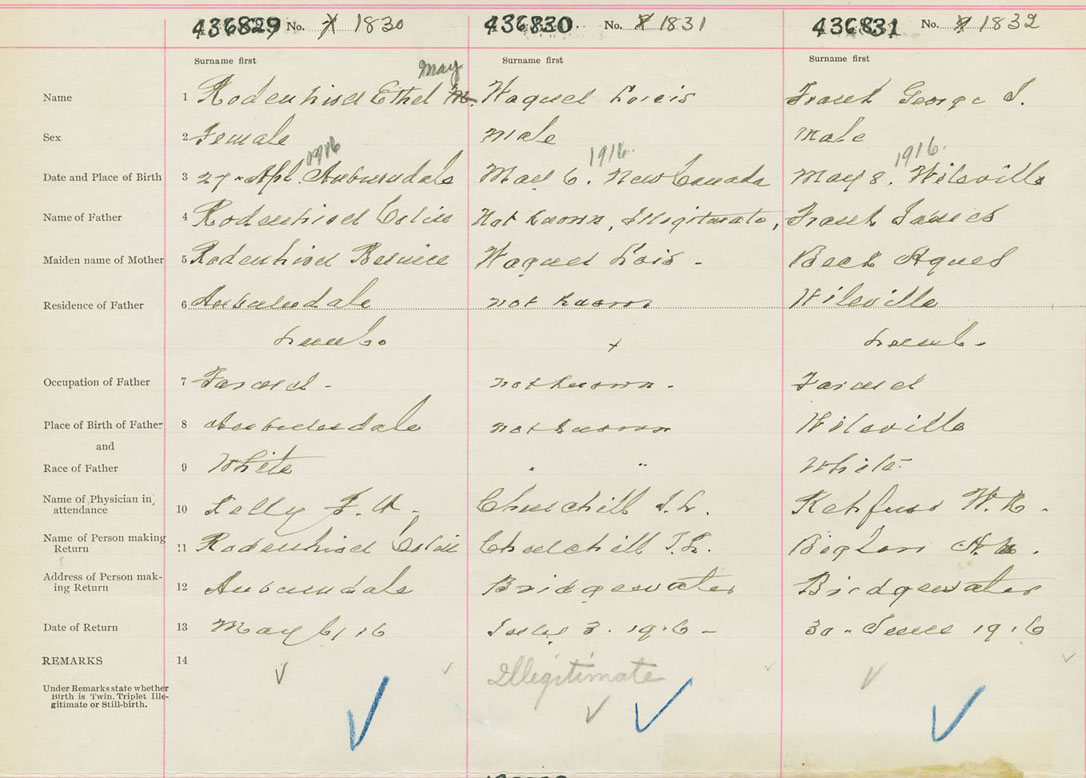 436829 No. 7 1830 436830 No. 8 1831 436831 No. 9 1832
Surname first Surname first Surname first
May
Name 1 Rodenhiser Ethel M. Waguer Louis Frank George S.
Sex 2 Female male male
1916 1916. 1916.
Date and Place of Birth 3 27 - Apl. Auburndale May 6. New Canada May 8. Wileville
Name of Father 4 Rodenhiser Not known, Illegitimate, Frank James
Maiden name of Mother 5 Rodenhiser Bernice Waguer Lois - Beck Agnes
Residence of Father 6 Auburndale not known Wileville
Lunb. x Lunb.
Occupation of Father 7 Farmer - not known - Farmer
Place of Birth of Father 8 Auburndale not known Wileville
and
Race of Father 9 White " " White
Name of Physician in attendance 10 F. A. Churchill W. R.
Name of Person making Return 11 Rodenhiser Churchill
Address of Person making Return 12 Auburndale Bridgewater Bridgewater
Date of Return 13 May 6/16 3. 1916 - 30 - June 1916
REMARKS 14 Illegitimate
Under Remarks state whether
Birth is Twin, Triplet Ille-
gitimate or Still-birth.